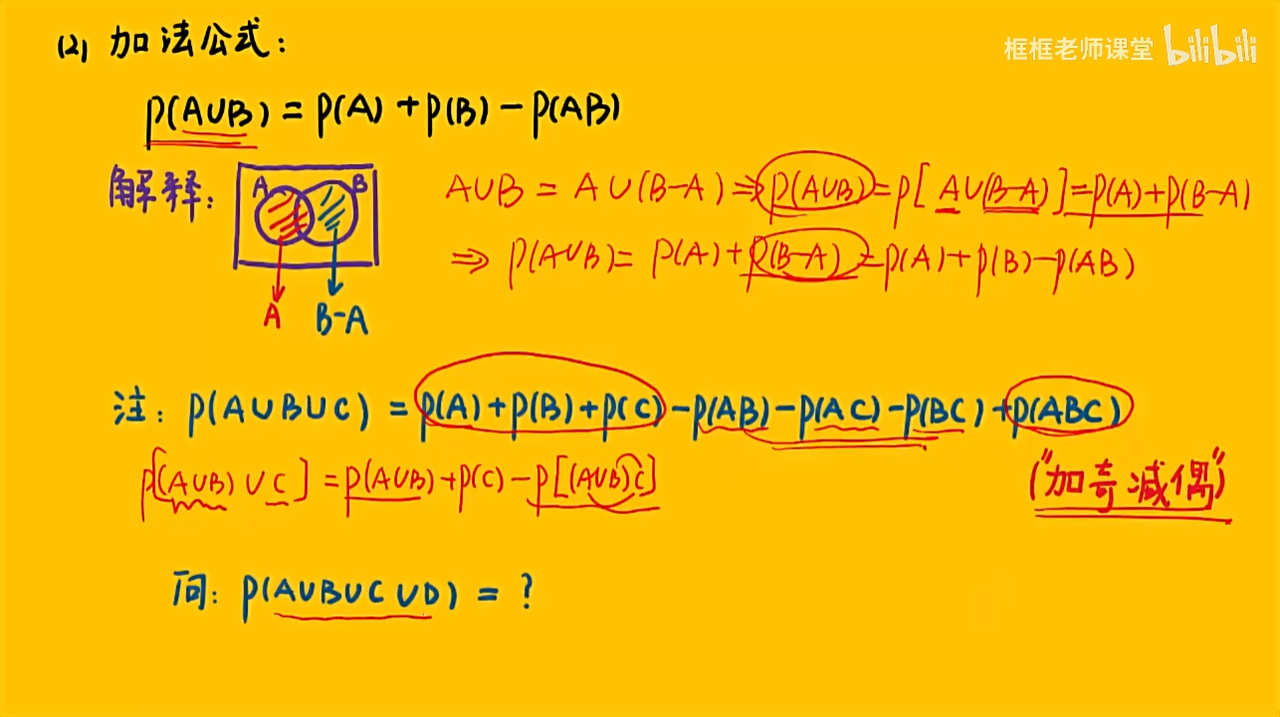 (2) 加法公式:
框框老师课堂 bilibili
P(A∪B) = P(A) + P(B) - P(AB)
解释: A B A B-A
A∪B = A∪(B-A) ⇒ P(A∪B) = P[A∪(B-A)] = P(A)+P(B-A)
⇒ P(A∪B) = P(A)+P(B-A) = P(A)+P(B)-P(AB)
注: P(A∪B∪C) = P(A)+P(B)+P(C)-P(AB)-P(AC)-P(BC)+P(ABC)
P[(A∪B)∪C] = P(A∪B)+P(C)-P[(A∪B)C]
("加奇减偶")
问: P(A∪B∪C∪D) = ?